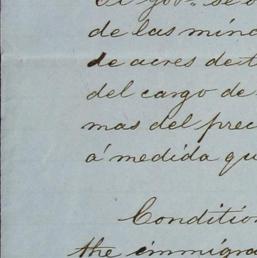 El gobo. se o
de las mina
de acres de t
del cargo de
mas del prec
á medida qu
Condition
the immigra